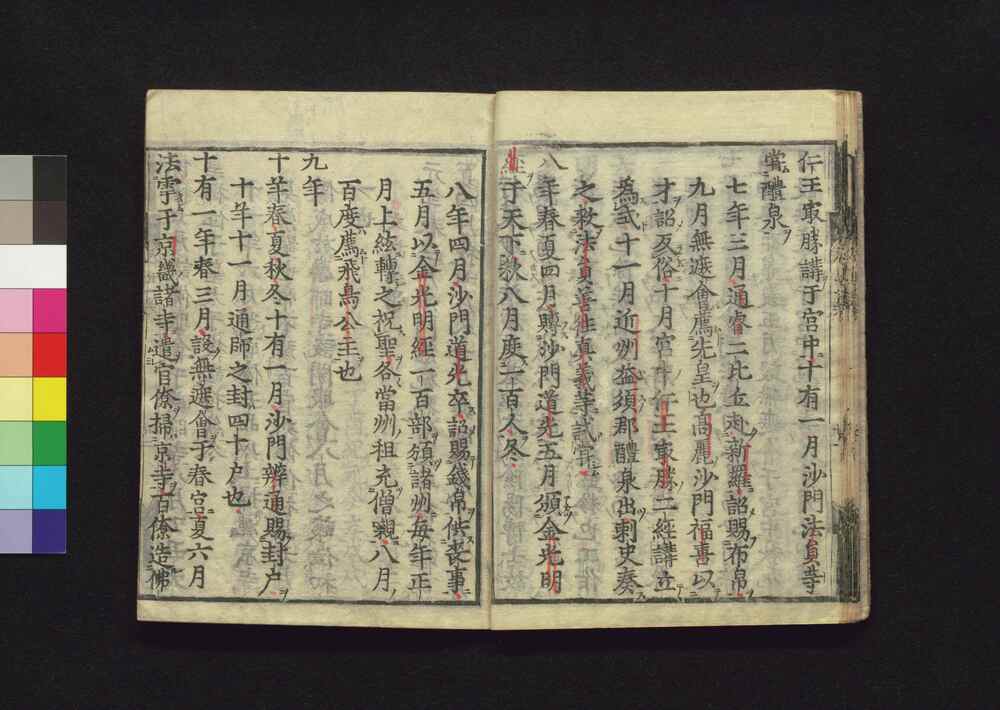 仁王最勝講于宮中十有一月沙門法員等
甞醴泉
七年三月通睿二比丘赴新羅詔賜布帛
九月無遮會薦先皇也高麗沙門福嘉以
才詔反俗十月宮中仁王最勝二經講立
為式十一月近州益須郡醴泉出刺史奏
之敕法員善往真義等試甞
八年春夏四月賻沙門道光五月頒金光明
經于天下秋八月度一百人冬
八年四月沙門道光卒詔賜錢帛供丧事
五月以金光明經一百部頒諸州每年正
月上絃轉之祝聖各當州租充僧䞋八月
百度薦飛鳥公主也
九年
十年春夏秋冬十有一月沙門辨通賜封户
十年十一月通師之封四十户也
十有一年春三月設無遮會于春宮夏六月
法雩于京畿諸寺遣官僚掃京寺百僚造佛